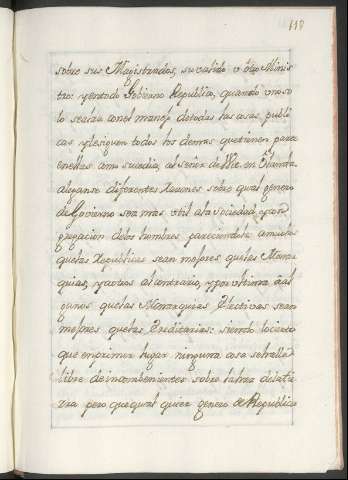 110
sobre sus Magistrados, su valido v otro Minis
tro: y en todo Gobierno Republica, quando vno so
lo se alza con el manejo de todas las cosas publi
cas, y le siguen todos los demas que tienen parte
en ellas como sucedia, al señor de Wit. en Olanda
aleganse diferentes razones sobre qual genero
de Govierno sea mas vtil ala Sociedad, y con
gregacion de los hombres pareciendole a muchos
que las Republicas sean mejores que las Monar
quias, y a otros al contrario, y por vltimo a al
gunos que las Monarquias Electivas sean
mejores que las Ereditarias: siendo lo cierto
que en primer lugar ninguna cosa se halla
libre de incombenientes sobre la haz de la tie
rra pero que qual quier genero de Republica